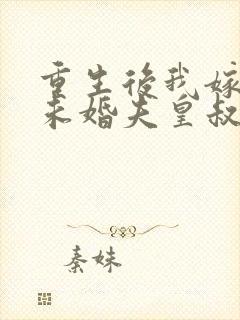 重生後我嫁
未婚夫皇叔
秦妹